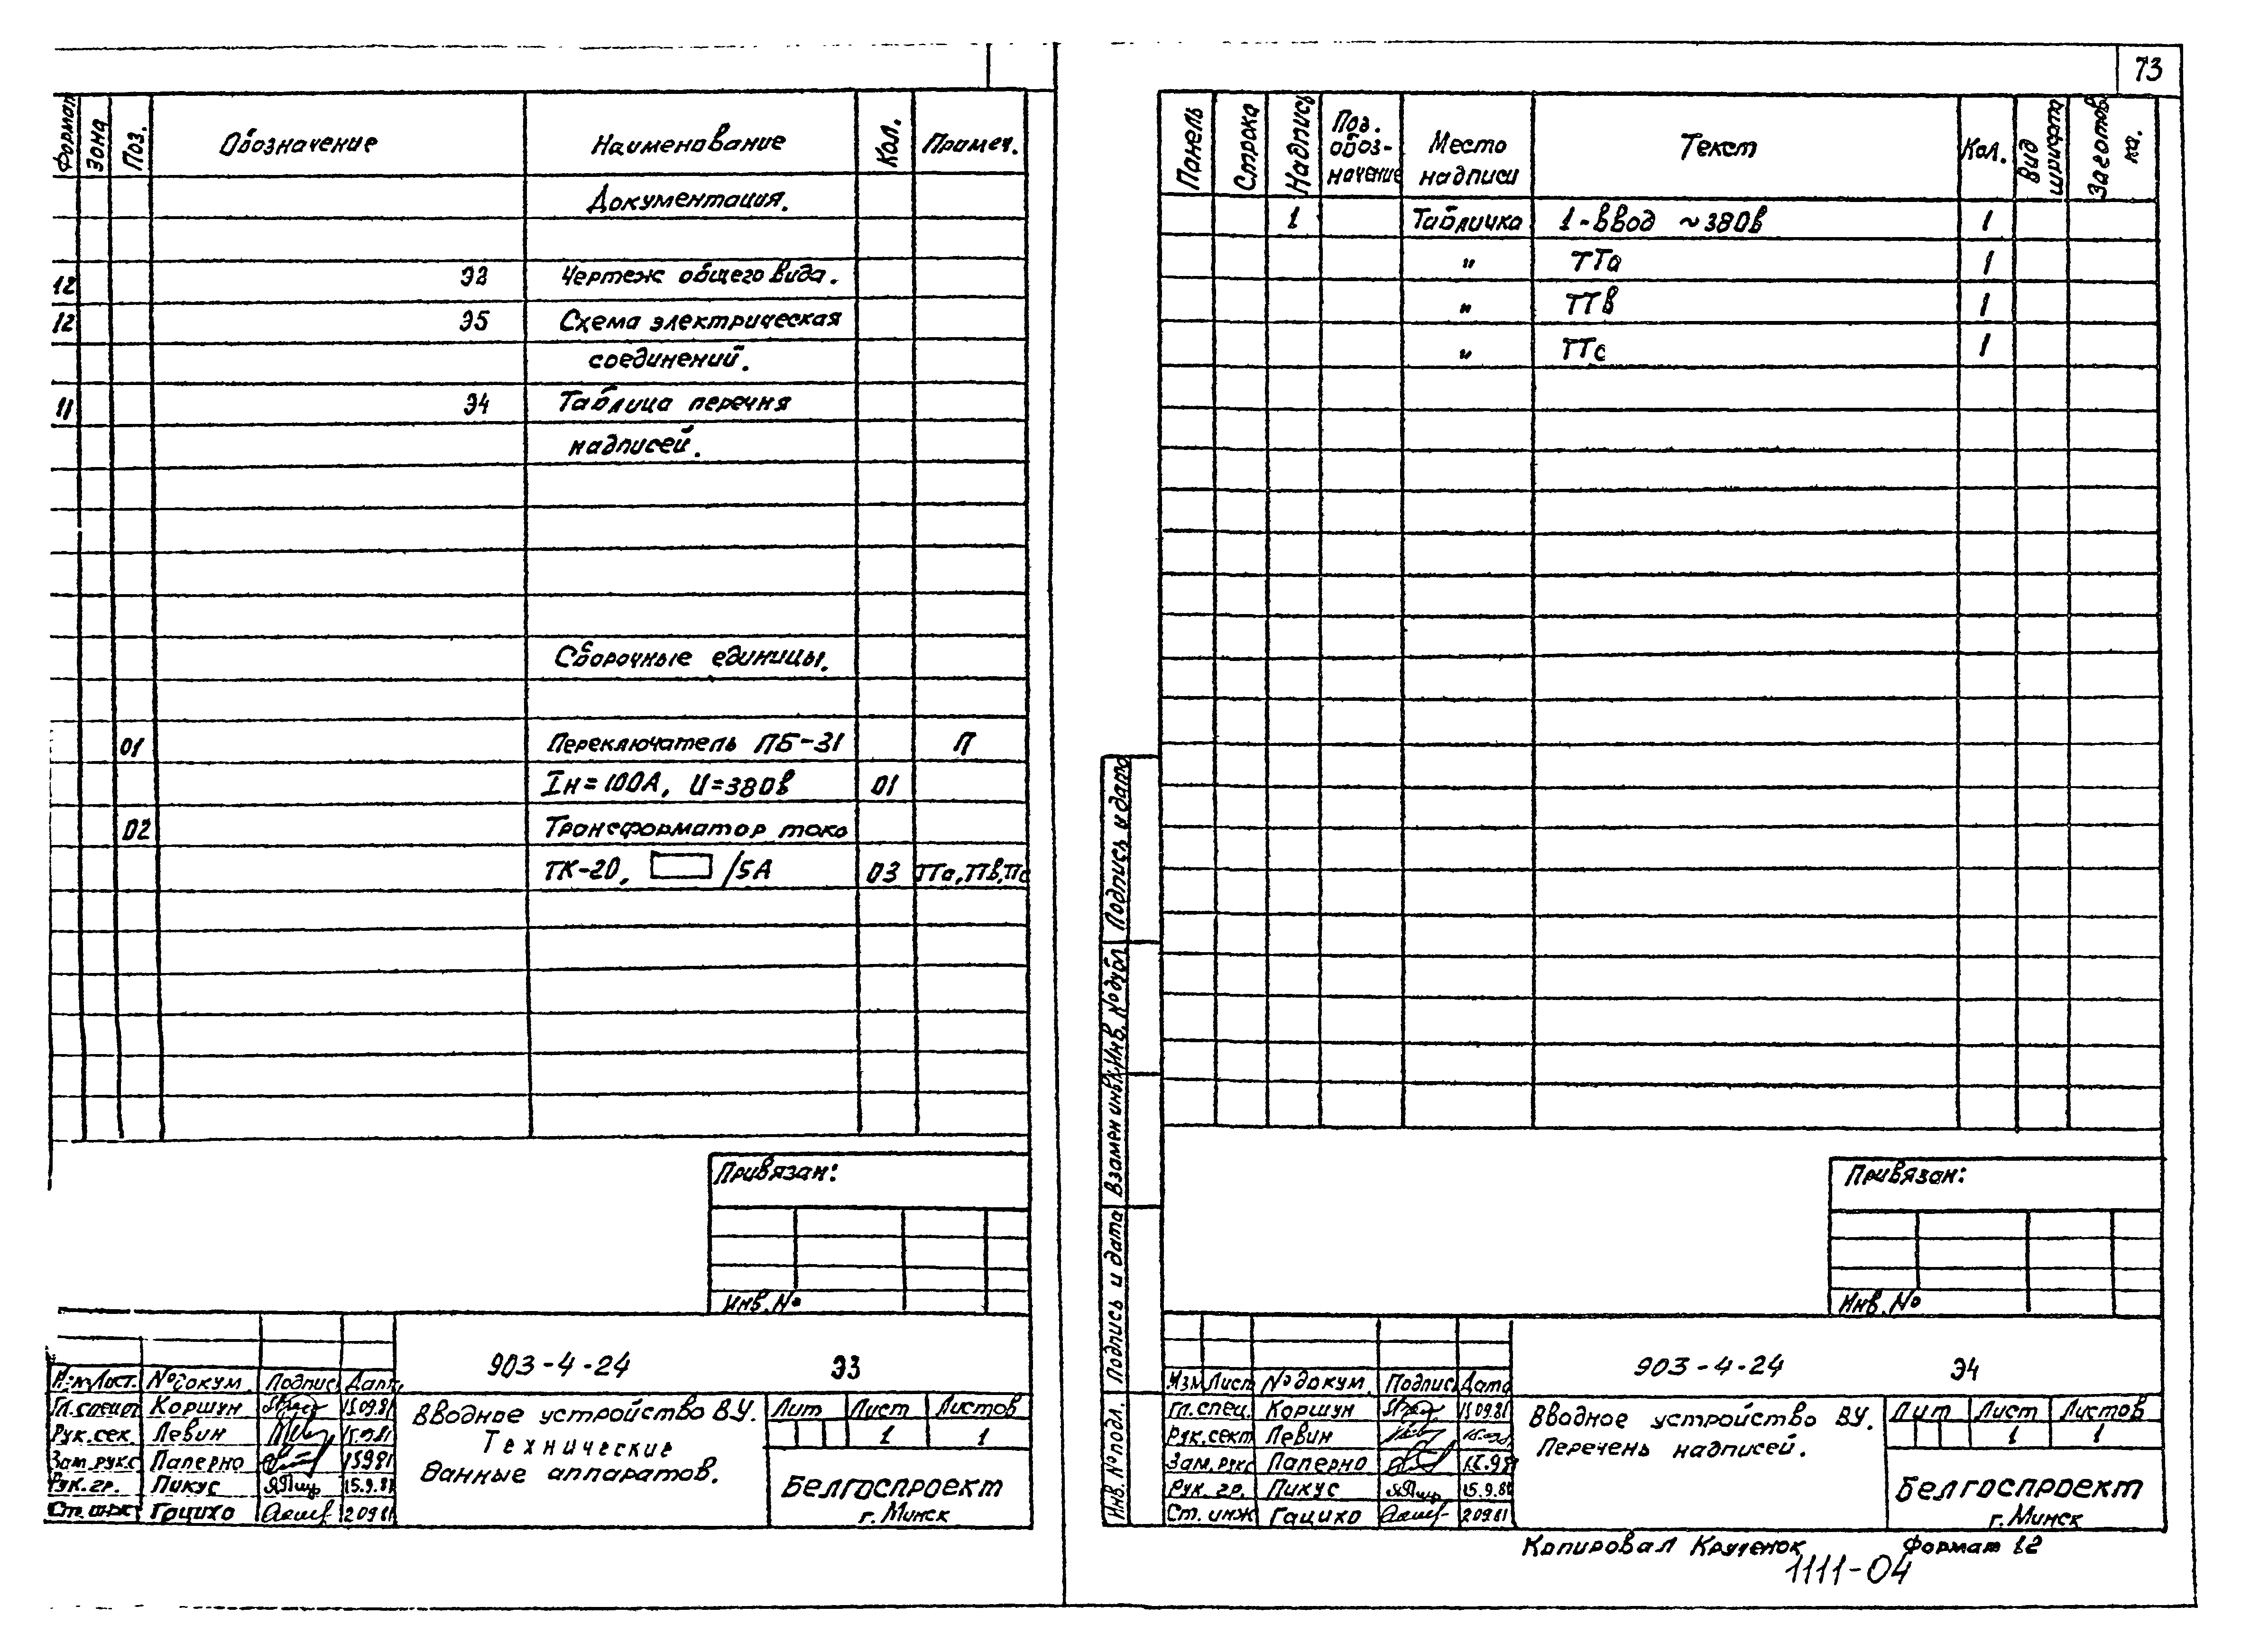 Формат Зона Поз. Обозначение Наименование Кол. Примеч.
Документация.
12 Э3 Чертеж общего вида.
12 Э5 Схема электрическая
соединений.
11 Э4 Таблица перечня
надписей.
Сборочные единицы.
01 Переключатель ПБ-31 П
Iн=100А, U=380в 01
02 Трансформатор тока
ТК-20, /5А 03 ТТа, ТТв, ТТс
Привязан:
Инв. №
903-4-24 Э3
Изм Лист. № докум. Подпис. Дата
Гл. специ Коршун 15.09.81
Рук. сек. Левин
Зам. рук с Паперно 15981
Рук. гр. Пикус 15.9.81
Ст. инж Гацихо 2.09.81
Вводное устройство ВУ.
Технические
данные аппаратов.
Лит Лист Листов
1 1
Белгоспроект
г. Минск
73
Панель Строка Надпись Поз. обоз-
начение Место
надписи Текст Кол. Вид
шрифта Заготов
ка.
1 Табличка 1-ввод ~380в 1
" ТТа 1
" ТТв 1
" ТТс 1
Подпись и дата
Инв. № дубл
Взамен инв. №
Подпись и дата
Инв. № подл.
Привязан:
Инв. №
903-4-24 Э4
Изм Лист № докум. Подпис. Дата
Гл. спец. Коршун 15.09.81
Рук. сект Левин
Зам. рук с Паперно
Рук. гр. Пикус 15.9.81
Ст. инж Гацихо 2.09.81
Вводное устройство ВУ.
Перечень надписей.
Лит Лист Листов
1 1
Белгоспроект
г. Минск
Копировал Крученок Формат 12
1111-04